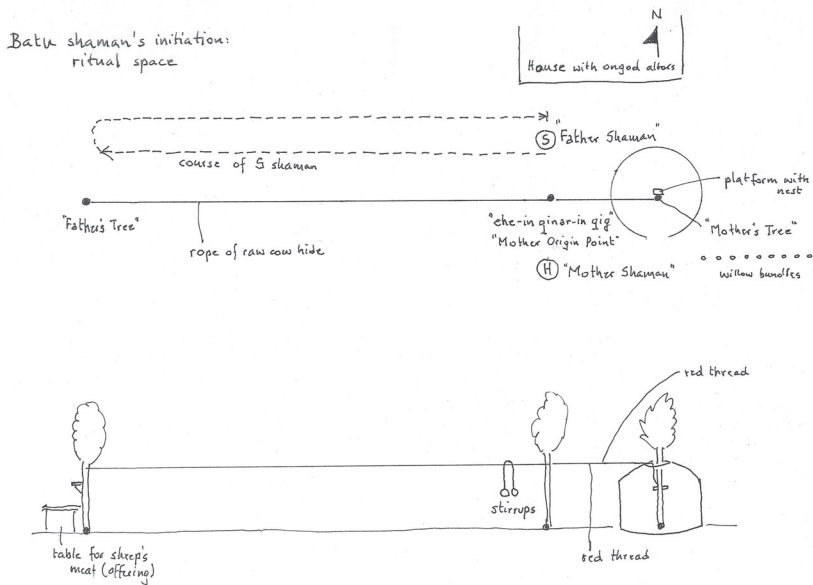 Batu shaman's initiation:
ritual space
N
House with ongod altars
S "Father Shaman"
course of S shaman
platform with
nest
"Father's Tree"
"ehe-in qinar-in qig"
"Mother Origin Point"
"Mother's Tree"
rope of raw cow hide
H "Mother Shaman"
willow bundles
red thread
stirrups
table for sheep's
meat (offering)
red thread